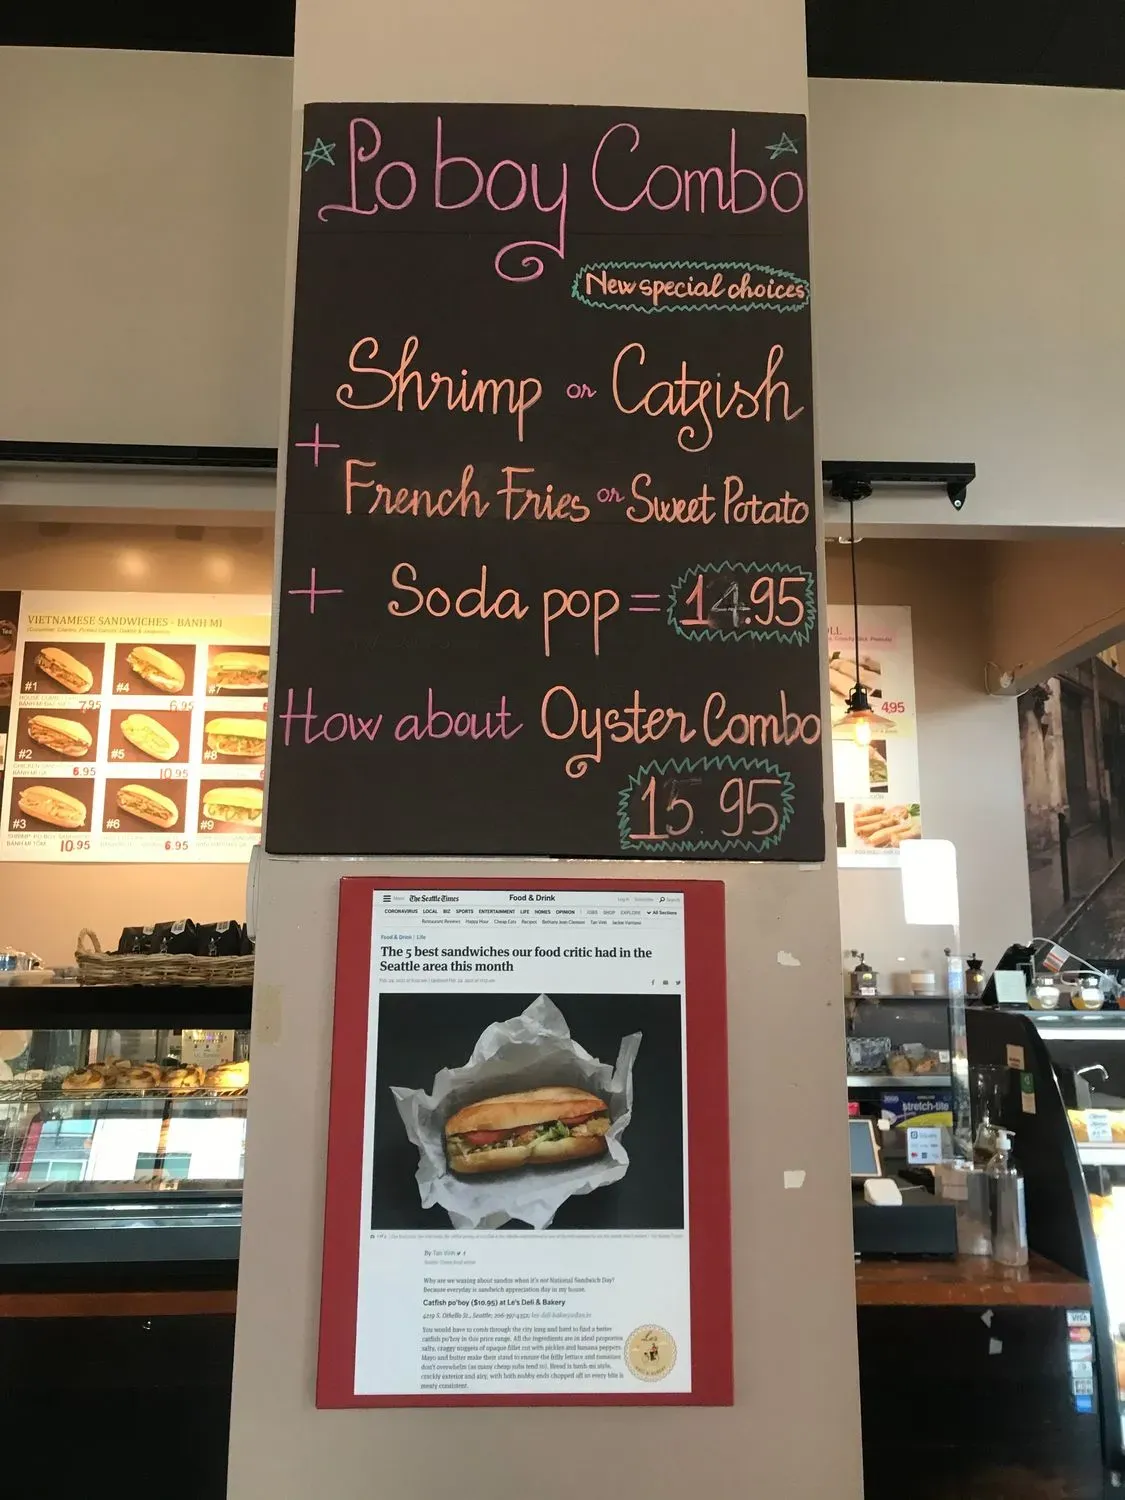 Po boy Combo
New special choices
Shrimp or Catfish
+
French Fries or Sweet Potato
+ Soda pop = 14.95
How about Oyster Combo
15.95
VIETNAMESE SANDWICHES - BÁNH MÌ
#1
7.95
#4
6.95
#7
#2
6.95
#5
10.95
#8
#3
BÁNH MÌ TÔM 10.95
#6
6.95
#9
4.95
The Seattle Times
Food & Drink
CORONAVIRUS LOCAL BIZ SPORTS ENTERTAINMENT LIFE HOMES OPINION | JOBS SHOP EXPLORE All Sections
Restaurant Reviews Happy Hour Cheap Eats Recipes Bethany Jean Clement Tan Vinh Jackie Varriano
Food & Drink | Life
The 5 best sandwiches our food critic had in the
Seattle area this month
By Tan Vinh
Seattle Times food writer
Why are we waxing about sandos when it's not National Sandwich Day?
Because everyday is sandwich appreciation day in my house.
Catfish po'boy ($10.95) at Le's Deli & Bakery
4219 S. Othello St., Seattle;
You would have to comb through the city long and hard to find a better
catfish po'boy in this price range. All the ingredients are in ideal proportion
salty, craggy nuggets of opaque fillet cut with pickles and banana peppers.
Mayo and butter make their stand to ensure the frilly lettuce and tomatoes
don't overwhelm (as many cheap subs tend to). Bread is banh-mi style,
crackly exterior and airy, with both nubby ends chopped off so every bite is
meaty consistent.
Les
stretch-tite
VISA